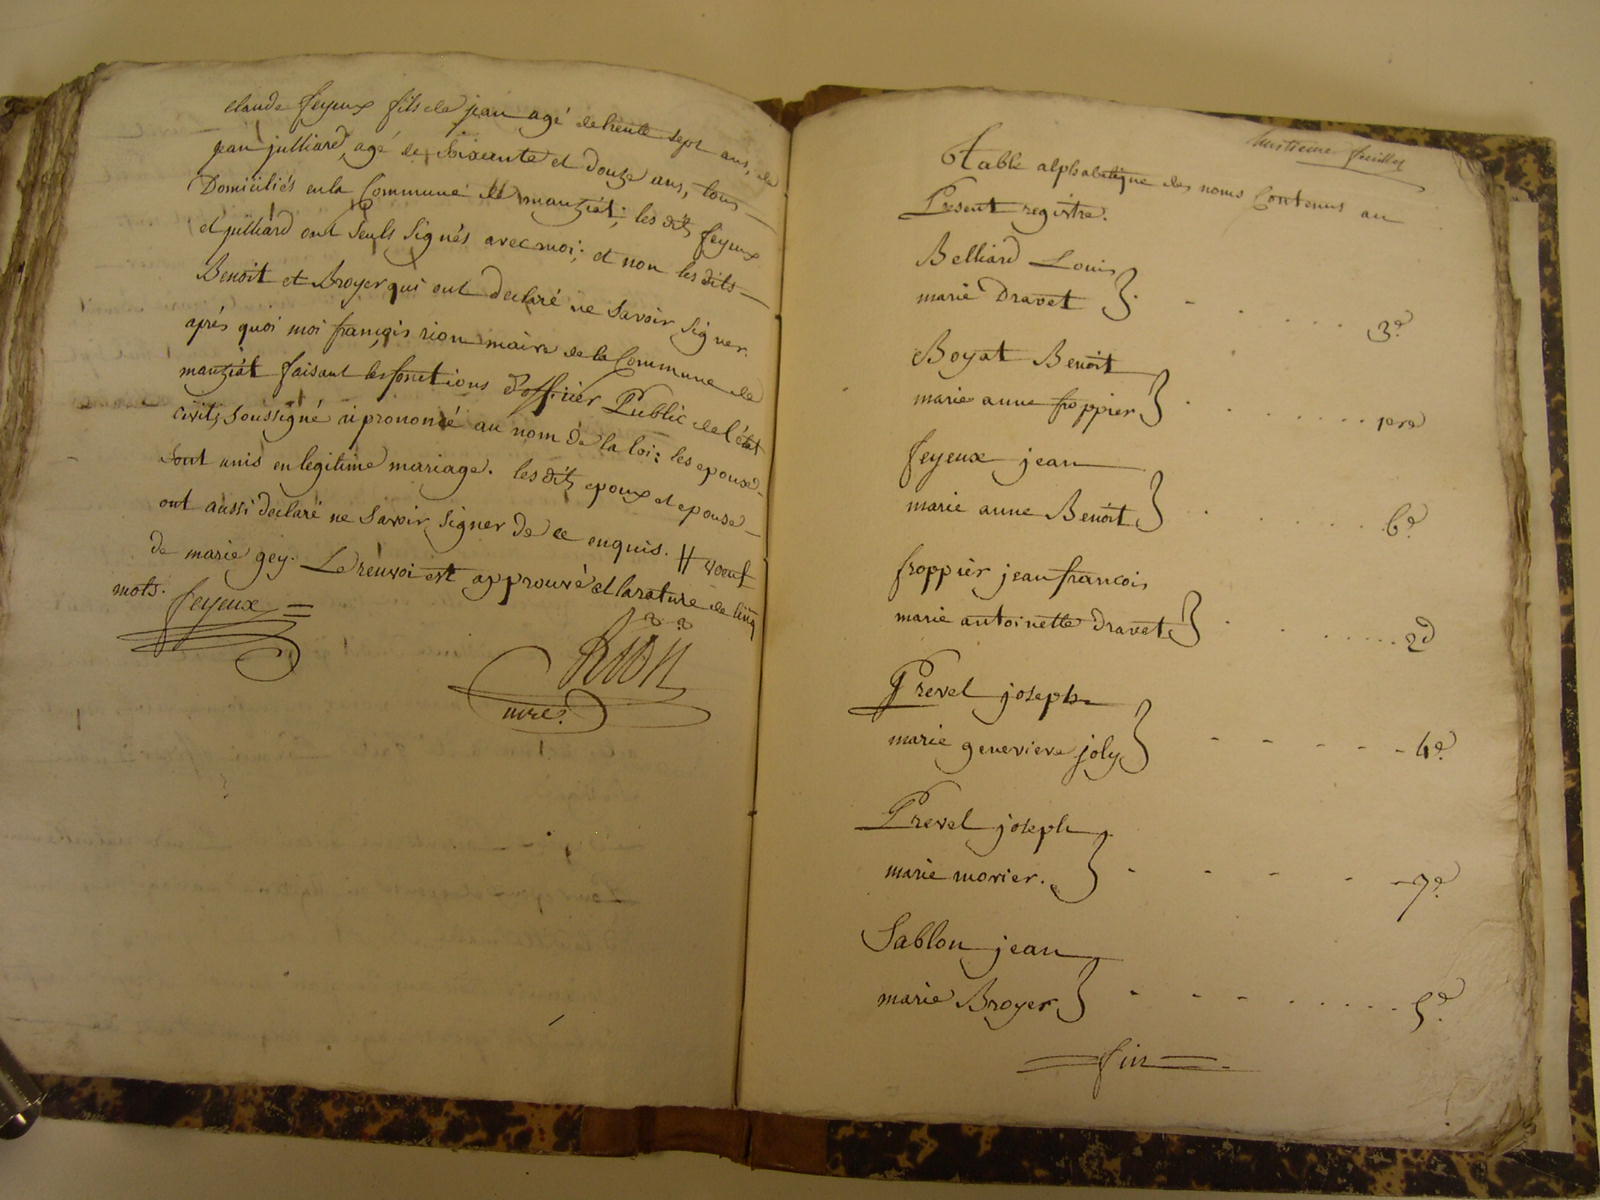 claude feyeux fils de jean agé de trente sept ans, de
jean julliard, agé de soixante et douze ans, tous
Domiciliés en la Commune de manziat; les dits feyeux
et julliard ont seuls signés avec moi; et non les dits
Benoit et Broyer qui ont declaré ne savoir signer.
après quoi moi françois rion maire de la Commune de
manziat faisant les fonctions d'officier Public de l'état
civil, soussigné ai prononcé au nom de la loi: les epoux
sont unis en legitime mariage. les dits epoux et epouse
ont aussi declaré ne savoir signer de ce enquis. # voeuf
de marie gey. Le renvoi est approuvé et la rature de cinq
mots.
feyeux
Rion
mre.
huitieme feuillet
Table alphabetique des noms Contenus au
Present registre.
Belliard Louis
marie Dravet } 3e
Boyat Benoit
marie anne froppier } 1ere
feyeux jean
marie anne Benoit } 6e
froppier jean francois
marie antoinette Dravet } 2d
Prevel joseph
marie genevieve joly } 4e
Prevel joseph
marie morier. } 7e
Sablon jean
marie Broyer } 5e
fin